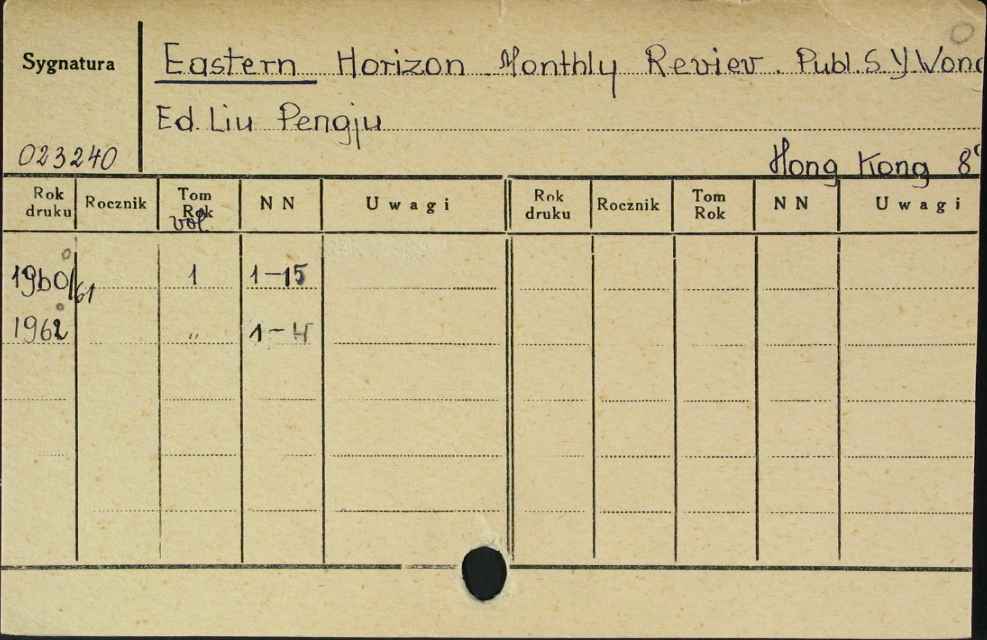 Sygnatura
Eastern Horizon Monthly Reviev. Publ. S. Y Wong
Ed. Liu Pengju
023240
Hong Kong 8°
Rok druku Rocznik Tom Rok vol. NN Uwagi Rok druku Rocznik Tom Rok NN Uwagi
1960/61 1 1-15
1962 " 1-4